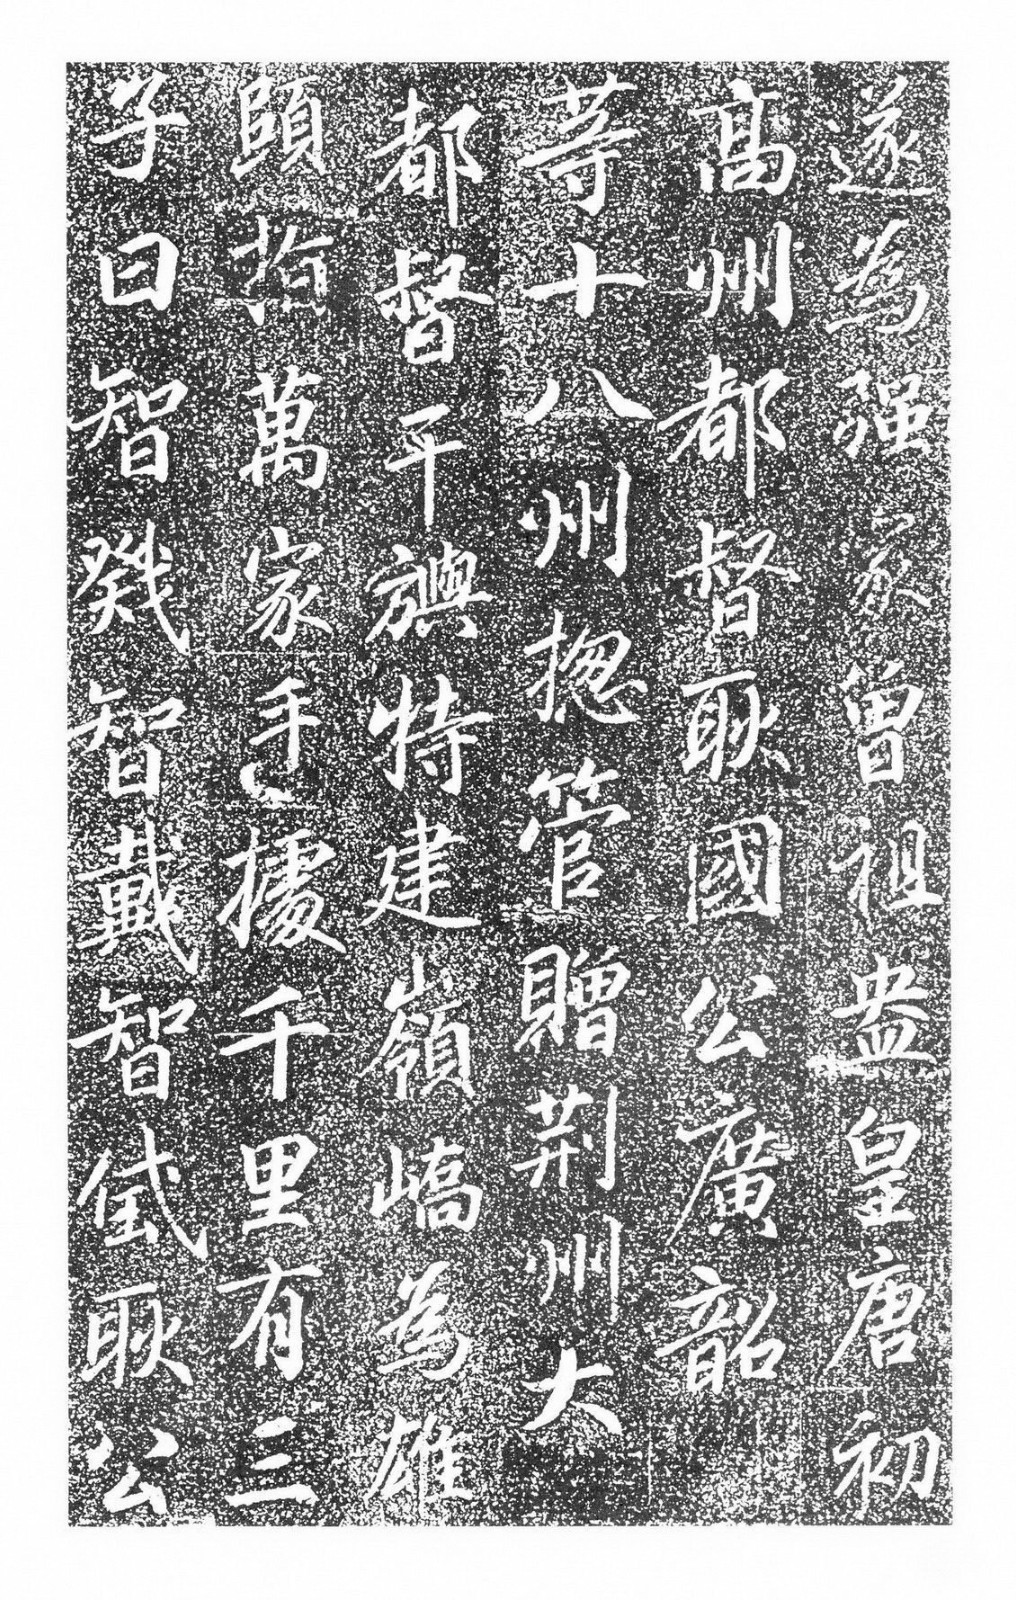 遂為強家曾祖盎皇唐初
高州都督耿國公廣韶
等十八州揔管贈荆州大
都督平輿特建嶺嶠為雄
頤指萬家手據千里有三
子曰智戣智戴智垈耿公